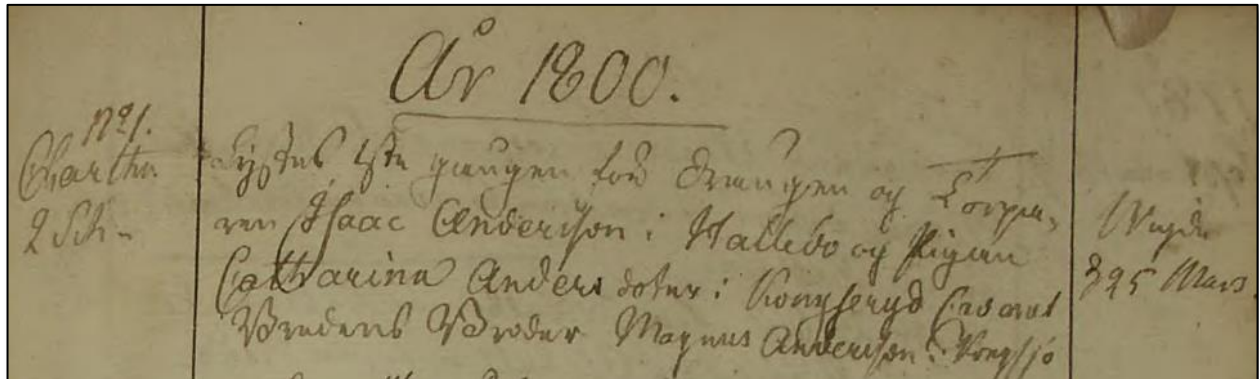 År 1800.
No 1.
Chartha
2 Sk.
Lystes 1sta gången för Drängen og
ren Isaac Anderson i Hallebo og Pigan
Catharina Anders doter i Kongseryd
Brudens Broder Magnus Anderson i
Wigde
d 25 Mars